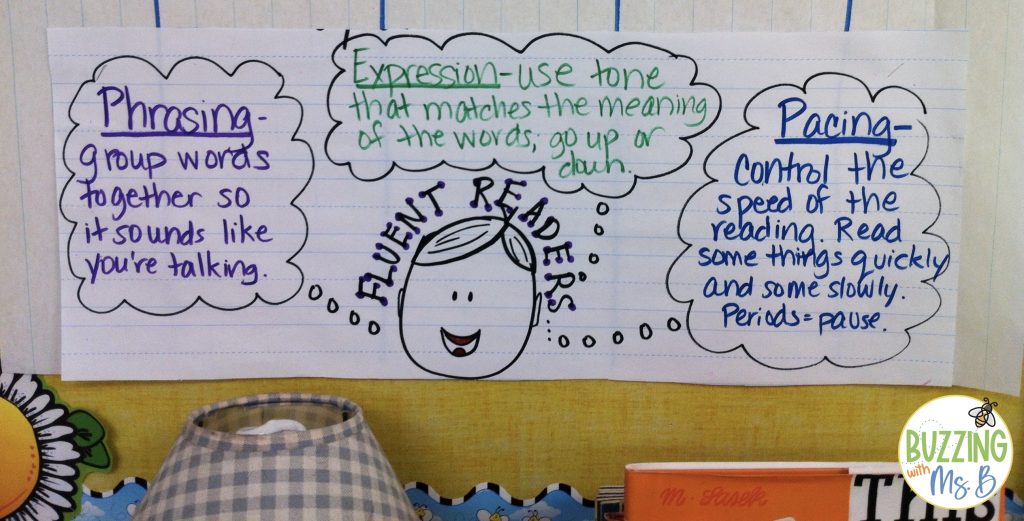 Phrasing-
group words
together so
it sounds like
you're talking.
Expression-use tone
that matches the meaning
of the words, go up or
down.
Pacing-
Control the
speed of the
reading. Read
some things quickly
and some slowly.
Periods=pause.
FLUENT READERS...
M. Sasek
This
BUZZING
with
Ms. B